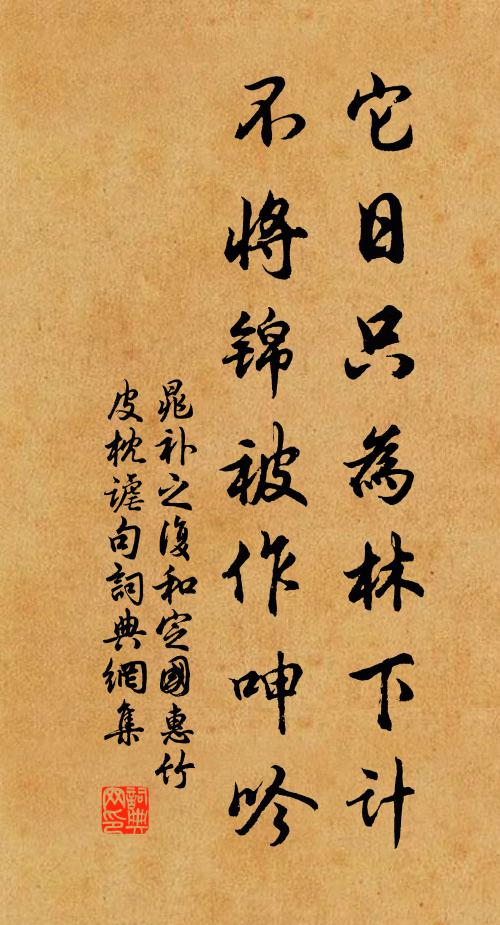 它日只為林下計
不將錦被作呻吟
晁補之復和定國惠竹
皮枕謔句詞典網集
詞典網印